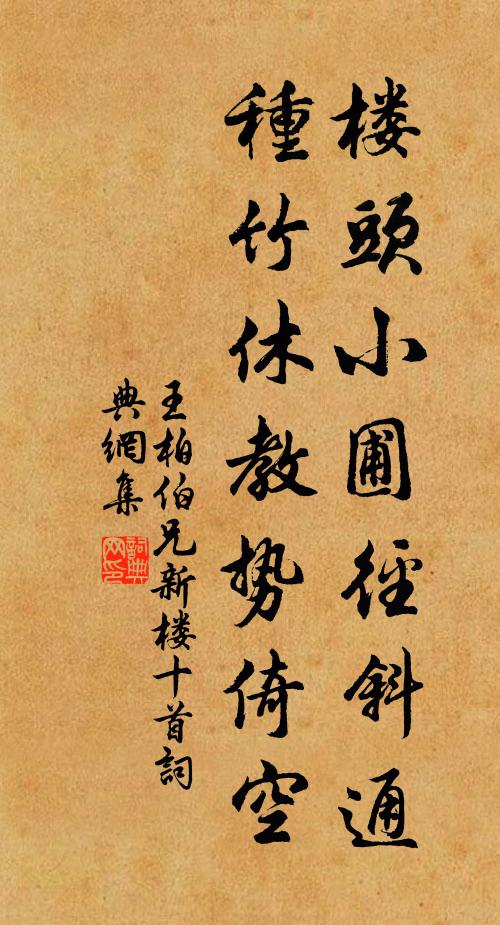 楼頭小圃徑斜通
種竹休教势倚空
王柏伯兄新楼十首詞
典網集
詞典
网印